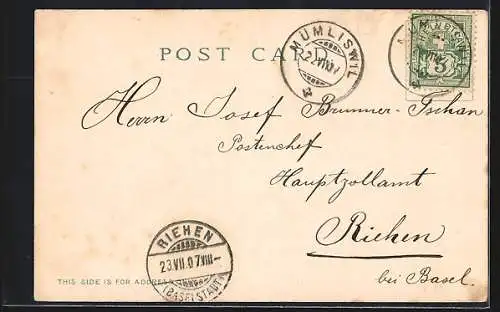 POST CARD
MÜMLISWIL
Herrn Josef Brunner-Tschan
Postenchef
Hauptzollamt
Riehen
bei Basel.
RIEHEN
23.VII.07.VIII-
(BASELSTADT)
THIS SIDE IS FOR ADDRESS
5